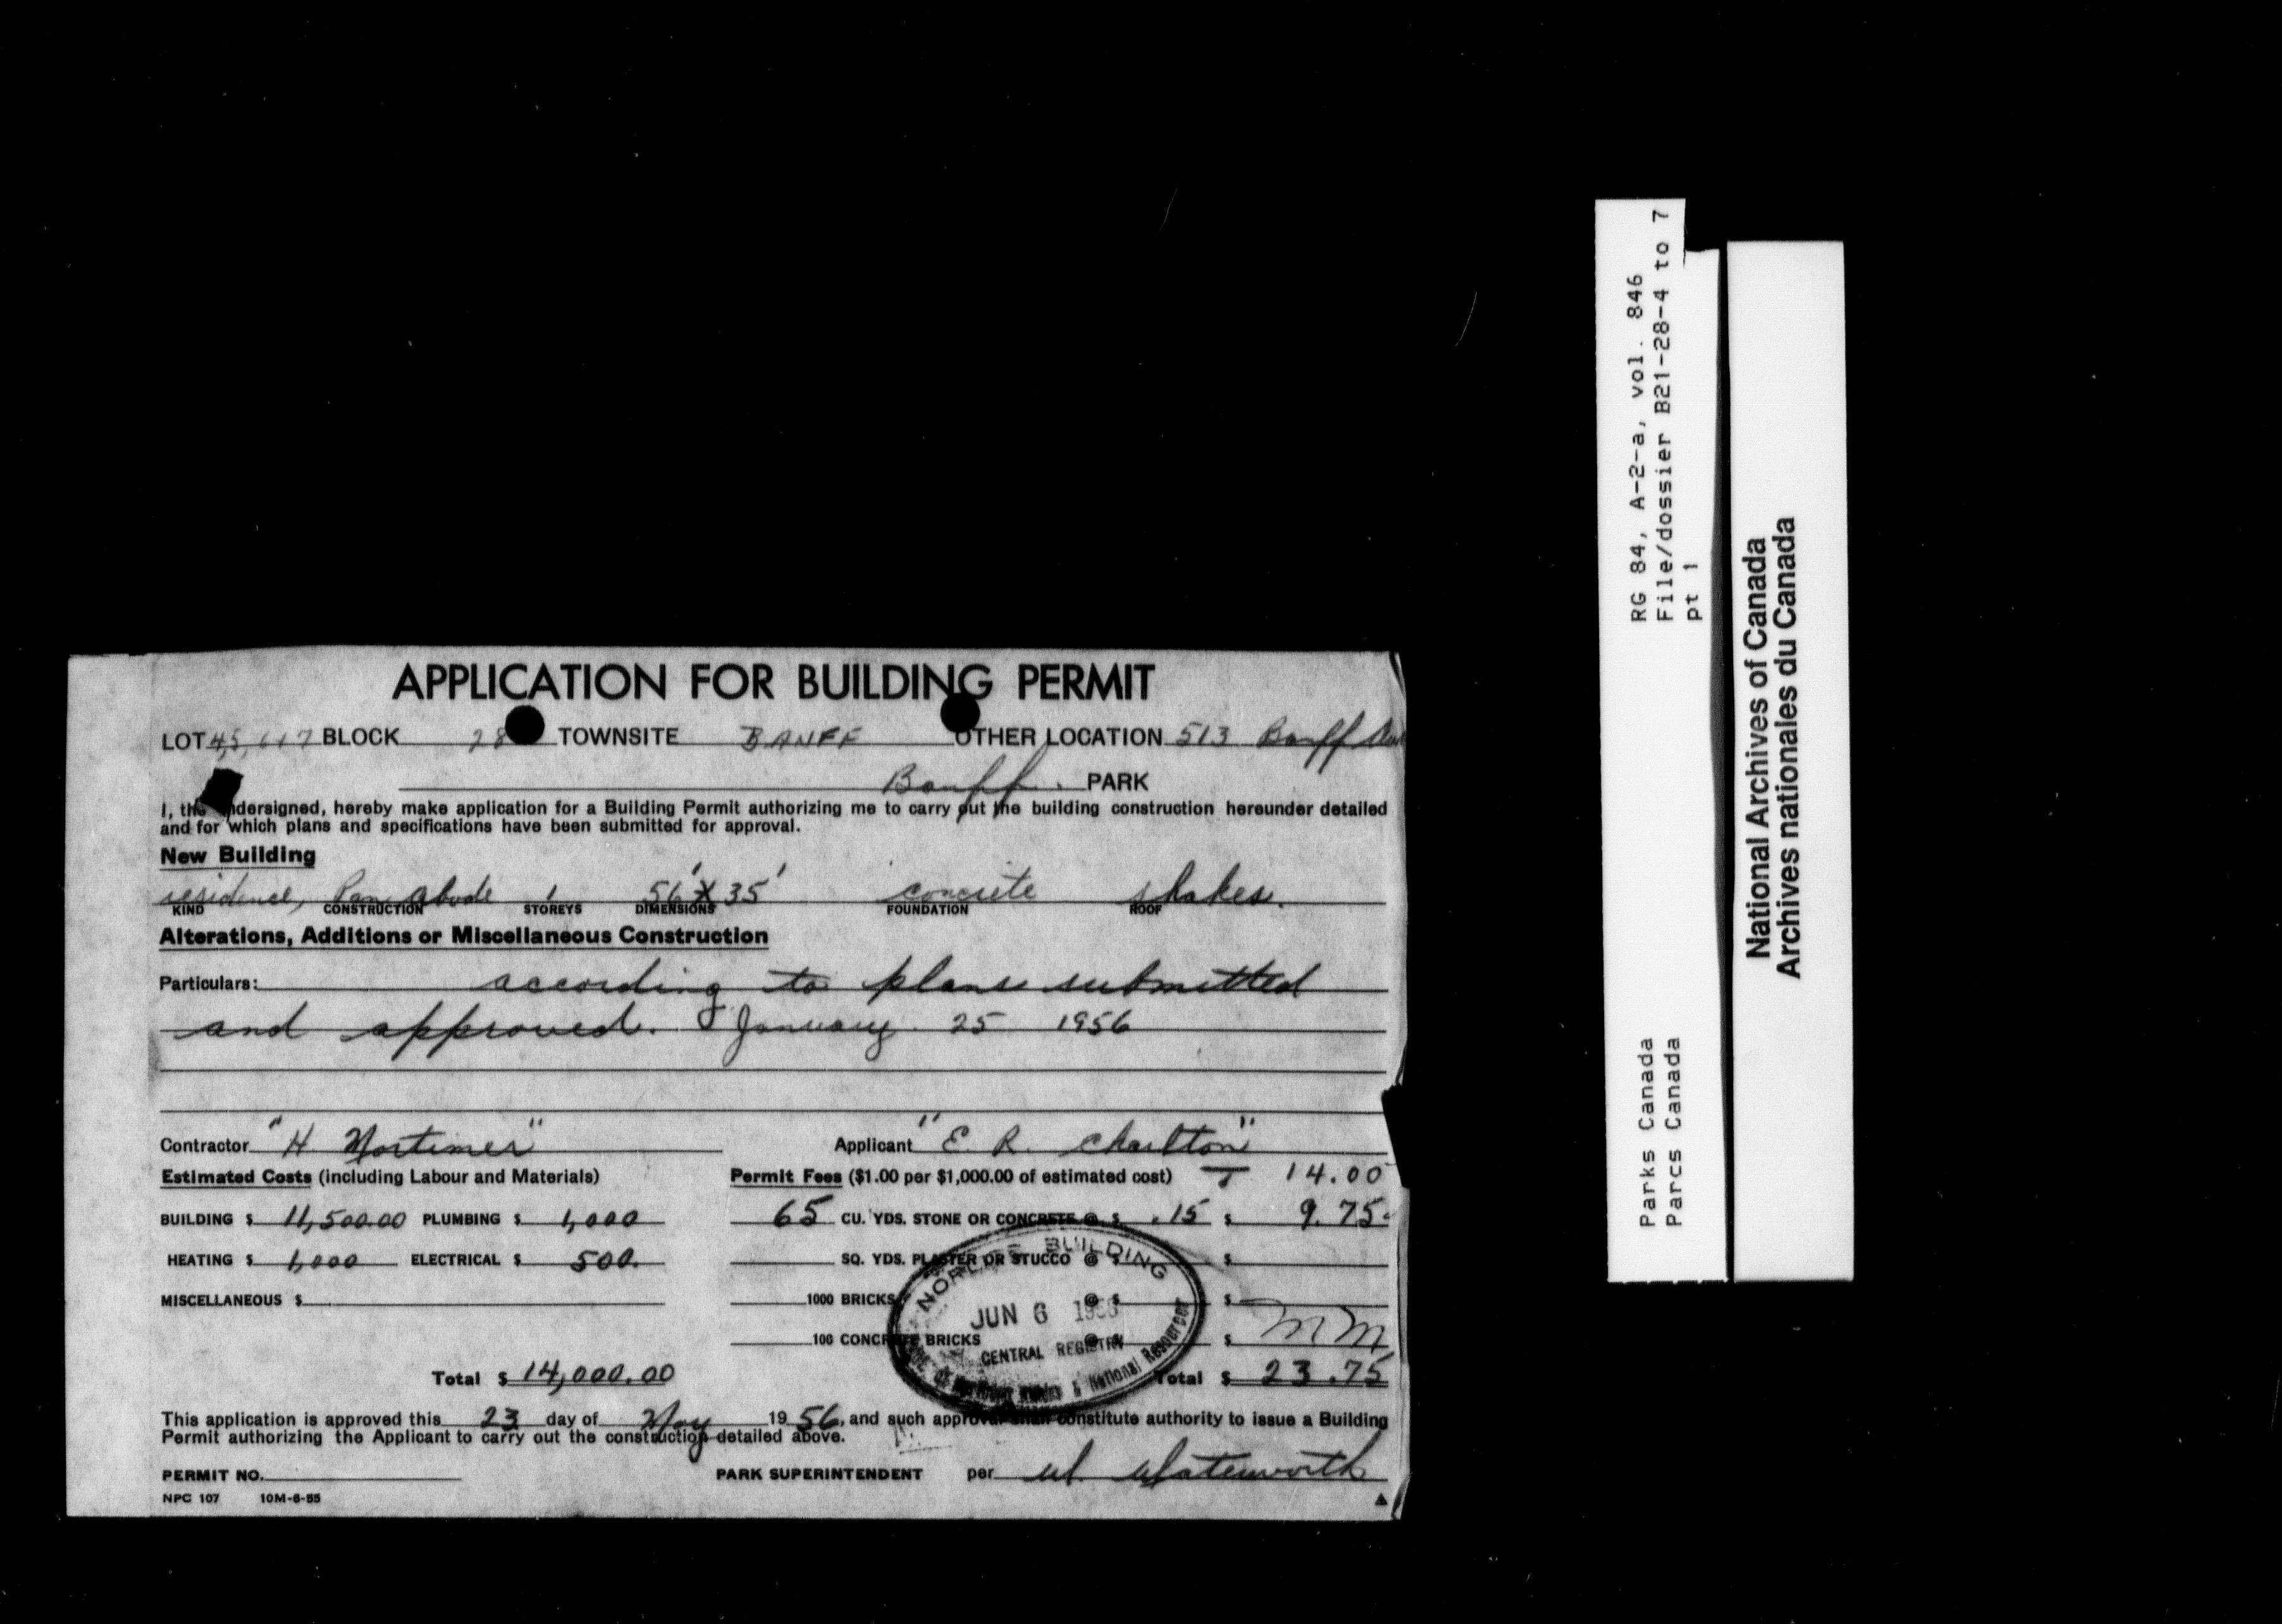 APPLICATION FOR BUILDING PERMIT
LOT 4,5, 6+7 BLOCK 28 TOWNSITE BANFF OTHER LOCATION 513 Banff
Banff. PARK
I, the undersigned, hereby make application for a Building Permit authorizing me to carry out the building construction hereunder detailed
and for which plans and specifications have been submitted for approval.
New Building
residence, Pan abode 1 56' X 35' concrete shakes.
KIND CONSTRUCTION STOREYS DIMENSIONS FOUNDATION ROOF
Alterations, Additions or Miscellaneous Construction
Particulars: according to plans submitted
and approved. January 25 1956
Contractor "H. Mortimer" Applicant "E. R. Charlton"
Estimated Costs (including Labour and Materials) Permit Fees ($1.00 per $1,000.00 of estimated cost) 14.00
BUILDING $ 11,500.00 PLUMBING $ 1,000 65 CU. YDS. STONE OR CONCRETE @ $ .15 $ 9.75
HEATING $ 1,000 ELECTRICAL $ 500. SQ. YDS. PLASTER OR STUCCO @ $ $
MISCELLANEOUS $ 1000 BRICKS @ $ $
100 CONCRETE BRICKS @ $ $ MM
Total $ 14,000.00 Total $ 23.75
BUILDING
JUN 6 1956
CENTRAL REGISTRY
& National Resources
This application is approved this 23 day of May 1956, and such approval shall constitute authority to issue a Building
Permit authorizing the Applicant to carry out the construction detailed above.
PERMIT NO. PARK SUPERINTENDENT per
NPC 107 10M-6-55
RG 84, A-2-a, vol. 846
File/dossier B21-28-4 to 7
pt 1
Parks Canada
Parcs Canada
National Archives of Canada
Archives nationales du Canada